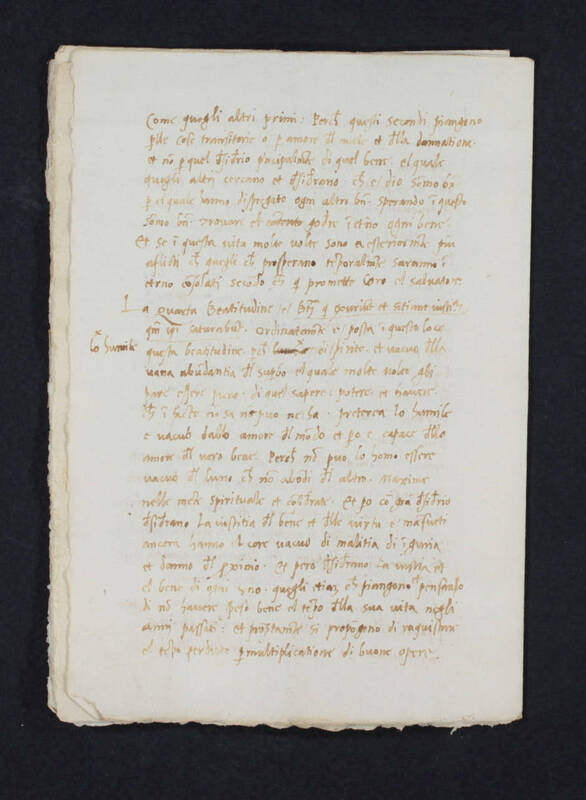 Come quegli altri primi: Perch questi secondi piangono
p lle cose transitorie o p amore dl male et dlla dannatione
et nō p quel dsidrio principalmte di quel bene: el quale
quegli altri cercano et dsidrano: ch e/ dio sōmo bn
p el quale hanno disprezato ogni altro bn. sperando ī questo
sōmo bn. trovare et godre ī etno ogni bene.
Et se ī questa vita molte volte sono exteriormte piu
aflicti ch quegli ch prosperano tēporalmte saranno ī
eterno cōsolati secōdo ch q promette loro el salvatore
La quarta Beatitudine e/ Bti q esuriut et sitiunt iustitiā
qm ipi saturabut. Ordinatamte e/ posta ī questo loco
Lo humile
questa beatitudine pch di spirito. et vacuo dlla
vana abūdantia dl supbo el quale molte volte gli
pare essere pieno di quel sapere: potere et havere.
ch ī facto cio sa nō puo ne ha. preterea lo humile
e vacuo dallo amore dl mōdo et po e capace dllo
amore dl vero bene. Perch nō puo lo homo essere
vacuo dl luno ch nō abōdi dl altro. maxime
nelle mēte spirituale et Et po cō grā dsidrio
dsidrano La iustitia dl bene et dlle virtu e mansueti
ancora hanno el core vacuo di malitia di īgiuria
et danno dl pximo. Et pero dsidrano La iustitia et
el bene di ogni uno. quegli etiaz ch piangono pensando
di nō havere speso bene el tēpo dlla sua vita negli
anni passati: et prōstamte si propōgono di raquistare
el tēpo perduto p multiplicatione di buone opere